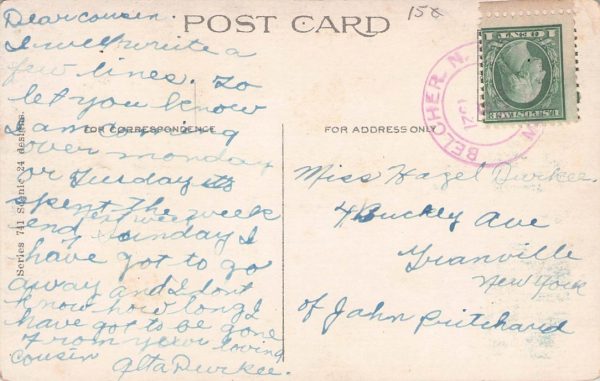 POST CARD
15¢
Dear cousin.
I will write a
few lines. To
let you know
I am coming
over monday
or Tuesday to
spent the week
end next week
Sunday I
have got to go
away and I dont
know how long I
have got to be gone
From your loving
cousin
Alta Durkee.
FOR CORRESPONDENCE
FOR ADDRESS ONLY
Series 741 Scenic 24 designs.
BELCHER, N.
1 CENT 1
U.S. POSTAGE
Miss Hazel Durkee
4 Buckly Ave
Granville
New York
of John Pritchard